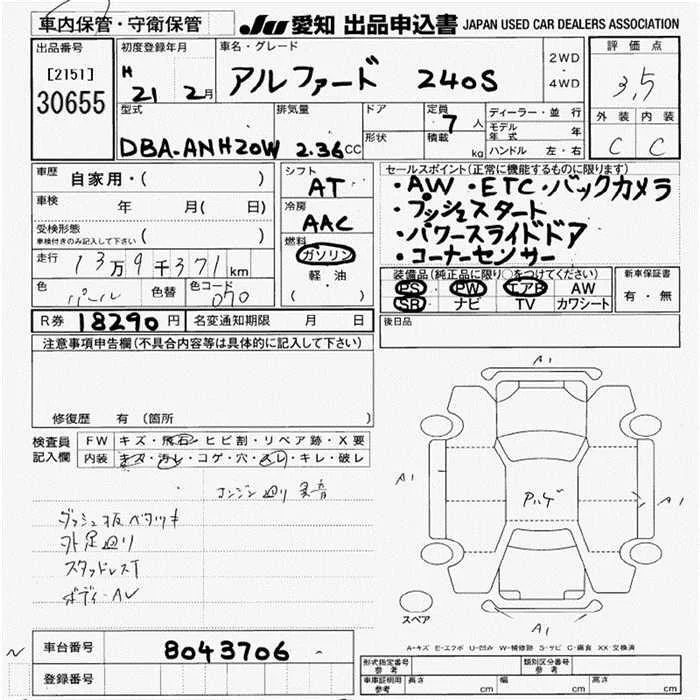 車内保管・守衛保管 JU 愛知 出品申込書 JAPAN USED CAR DEALERS ASSOCIATION
出品番号 初度登録年月 車名・グレード 評価点
[2151] H 2WD
30655 21 2月 アルファード 240S ・ 3,5
4WD
型式 排気量 ドア 定員 ディーラー・並行 外装 内装
7人 モデル年式 年
形状 積載 kg ハンドル 左・右 C C
DBA-ANH20W 2.36cc
車歴 自家用・( ) シフト セールスポイント(正常に機能するものに限ります)
AT ・AW・ETC・バックカメラ
車検 年 月( 日) 冷房 ・プッシュスタート
AAC ・パワースライドドア
受検形態 ・コーナーセンサー
車検付きのみ記入して下さい ( ) 燃料
走行 13万9千371km ガソリン 装備品(純正品に限り○をつけてください) 新車保証書
軽油 PS PW エアB AW 有・無
色 パール 色替 色コード 070 ( ) SR ナビ TV カワシート
R券 18290円 名変通知期限 月 日 後日品
注意事項申告欄(不具合内容等は具体的に記入して下さい)
修復歴 有(箇所 )
検査員 FW キズ・飛石・ヒビ割・リペア跡・X要
記入欄 内装 キズ・汚レ・コゲ・穴・スレ・キレ・破レ
エンジン廻り 異音
ダッシュ板ベタツキ
外足廻り
スタッドレスT
ボディーAL
A1
A1
Pハゲ
A1
A1
スペア
A-キズ E-エクボ U-凹み W-補修跡 S-サビ C-腐食 XX-交換済
車台番号 8043706
登録番号
形式指定番号 参考 類別区分番号 参考
車庫証明用 参考 長さ cm 幅 cm 高さ cm